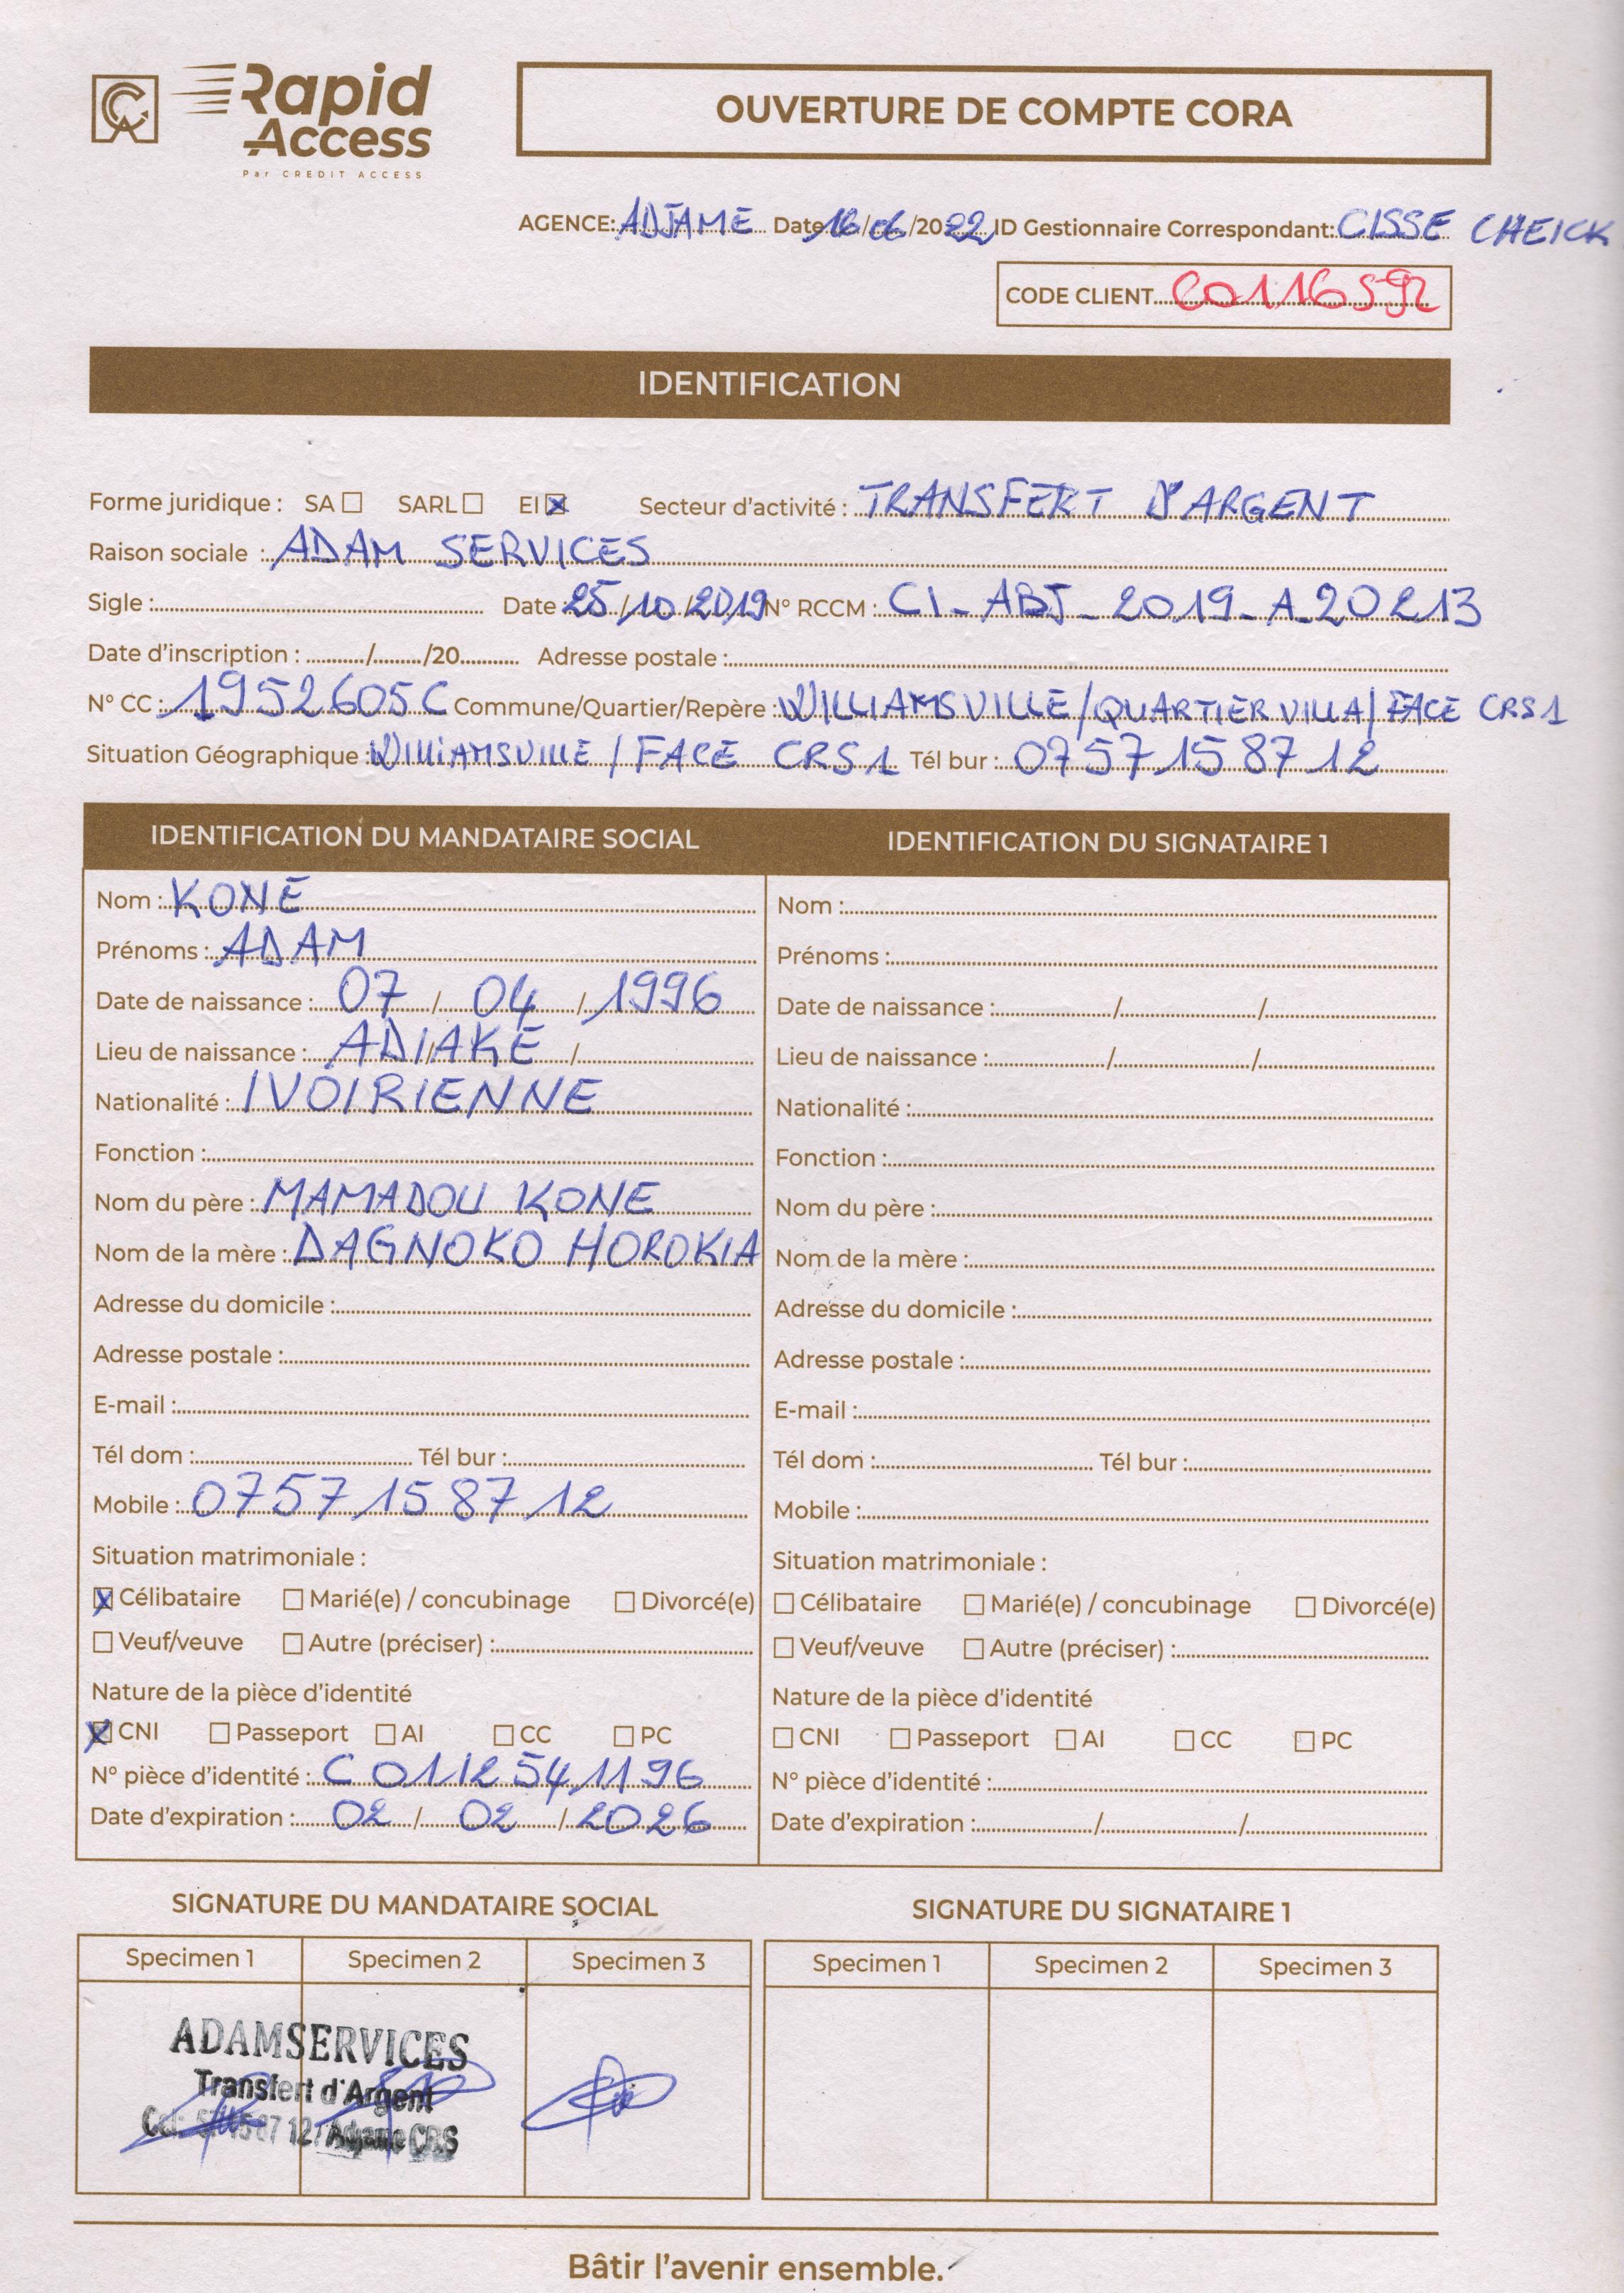 CA Rapid Access
Par CREDIT ACCESS
OUVERTURE DE COMPTE CORA
AGENCE: ADJAME Date 16/06/2022 ID Gestionnaire Correspondant: CISSE CHEICK
CODE CLIENT C0116592
IDENTIFICATION
Forme juridique : SA ☐ SARL ☐ EI ☒ Secteur d'activité : TRANSFERT D'ARGENT
Raison sociale : ADAM SERVICES
Sigle : Date : 25/10/2019 N° RCCM : CI-ABJ-2019-A-20213
Date d'inscription : ......../......../20........ Adresse postale :
N° CC : 1952605C Commune/Quartier/Repère : WILLIAMSVILLE/QUARTIER VILLA/FACE CRS1
Situation Géographique : WILLIAMSVILLE / FACE CRS1 Tél bur : 07 57 15 87 12
IDENTIFICATION DU MANDATAIRE SOCIAL
Nom : KONE
Prénoms : ADAM
Date de naissance : 07 / 04 / 1996
Lieu de naissance : ADIAKE
Nationalité : IVOIRIENNE
Fonction :
Nom du père : MAMADOU KONE
Nom de la mère : DAGNOKO HOROKIA
Adresse du domicile :
Adresse postale :
E-mail :
Tél dom : Tél bur :
Mobile : 07 57 15 87 12
Situation matrimoniale :
☒ Célibataire ☐ Marié(e) / concubinage ☐ Divorcé(e)
☐ Veuf/veuve ☐ Autre (préciser) :
Nature de la pièce d'identité
☒ CNI ☐ Passeport ☐ AI ☐ CC ☐ PC
N° pièce d'identité : C 0112541196
Date d'expiration : 02 / 02 / 2026
IDENTIFICATION DU SIGNATAIRE 1
Nom :
Prénoms :
Date de naissance : / /
Lieu de naissance : / /
Nationalité :
Fonction :
Nom du père :
Nom de la mère :
Adresse du domicile :
Adresse postale :
E-mail :
Tél dom : Tél bur :
Mobile :
Situation matrimoniale :
☐ Célibataire ☐ Marié(e) / concubinage ☐ Divorcé(e)
☐ Veuf/veuve ☐ Autre (préciser) :
Nature de la pièce d'identité
☐ CNI ☐ Passeport ☐ AI ☐ CC ☐ PC
N° pièce d'identité :
Date d'expiration : / /
SIGNATURE DU MANDATAIRE SOCIAL
Specimen 1 Specimen 2 Specimen 3
ADAMSERVICES
Transfert d'Argent
87 12 Adjame CRS
SIGNATURE DU SIGNATAIRE 1
Specimen 1 Specimen 2 Specimen 3
Bâtir l'avenir ensemble.